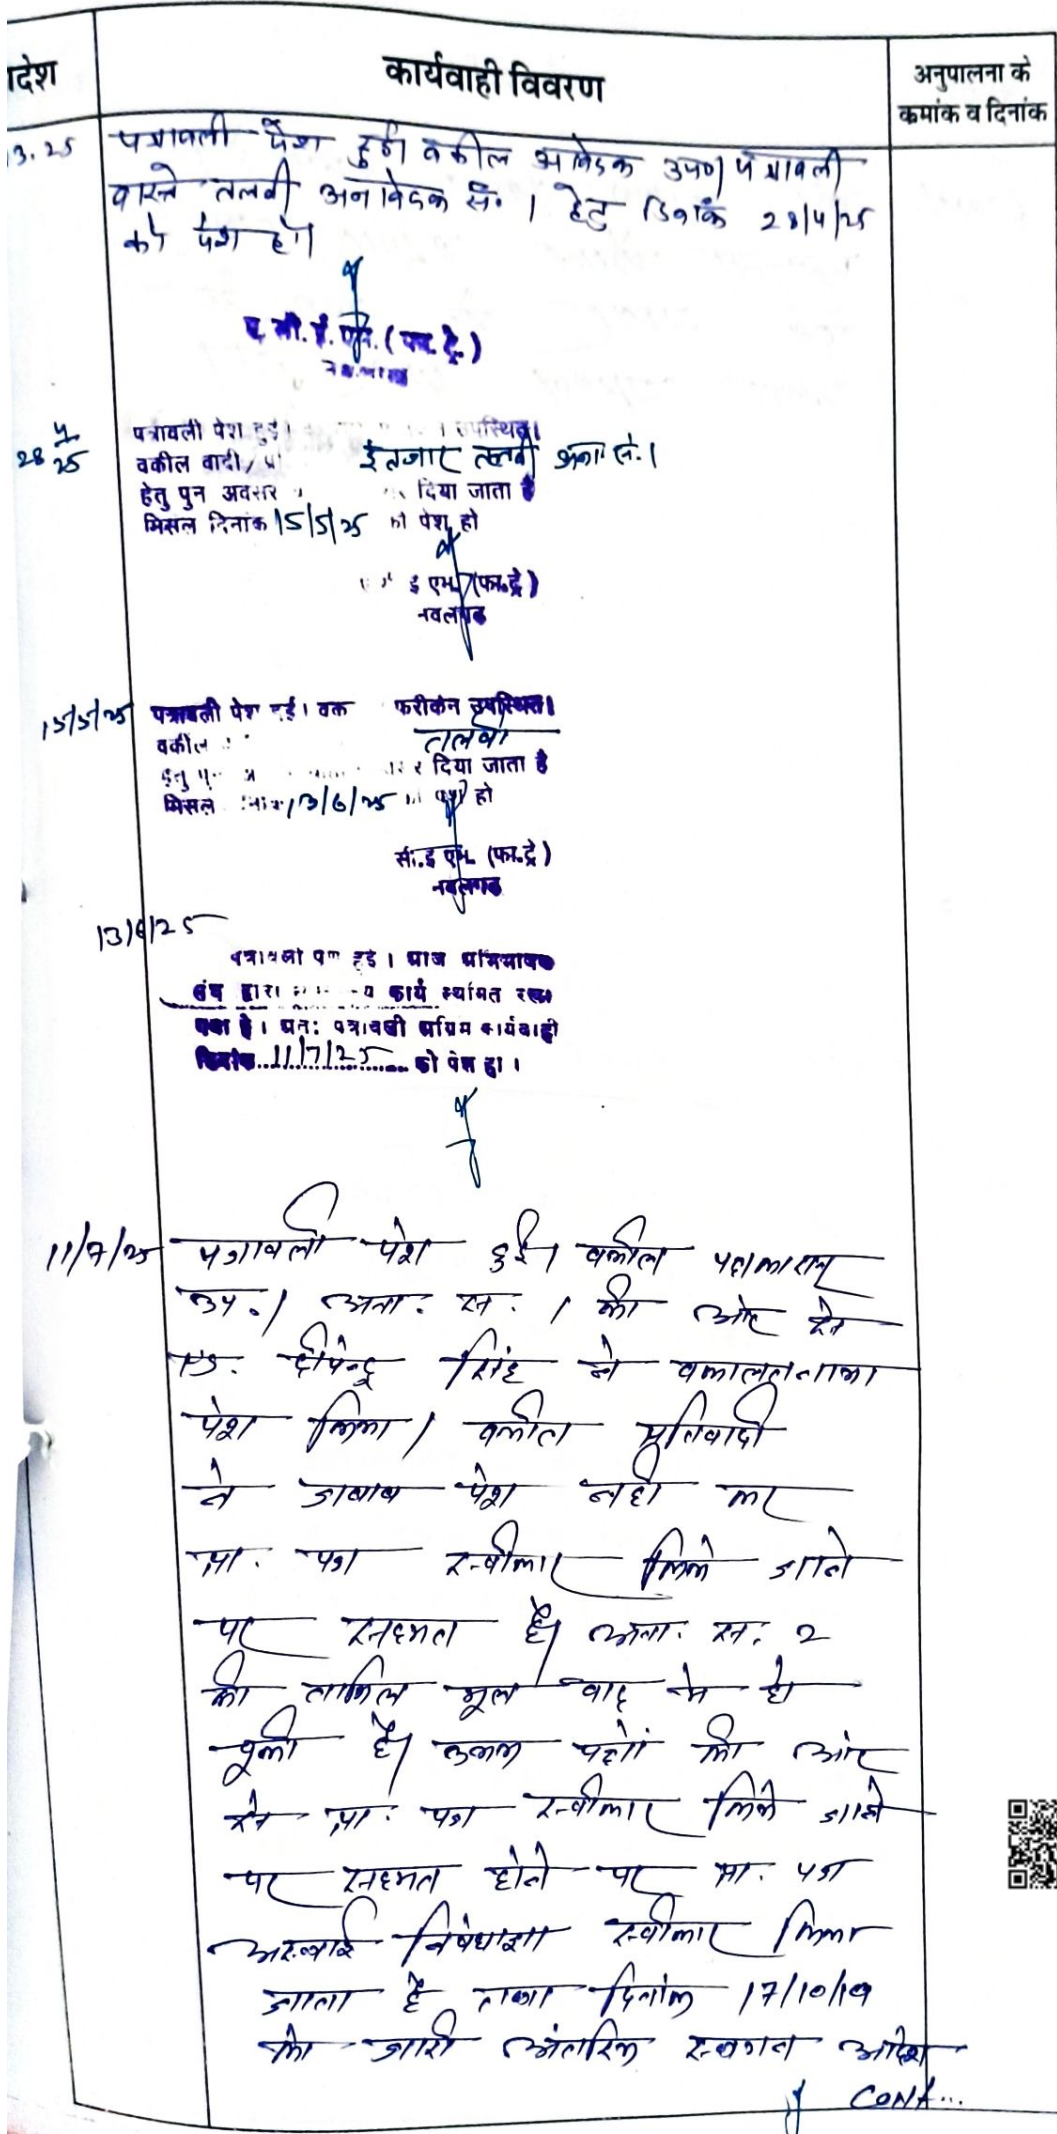 देश
कार्यवाही विवरण
अनुपालना के
क्रमांक व दिनांक
3.25
पत्रावली पेश हुई। वकील आवेदक उप०। पत्रावली
वास्ते तलवी अनावेदक सं. 1 हेतु दिनांक 28/4/25
को पेश हो।
ई. एम. (फा. ट्रे.)
28/4/25
पत्रावली पेश हुई। उपस्थित।
वकील वादी / इंतजार तलवी अना सं. 1
हेतु पुन अवसर दिया जाता है
मिसल दिनांक 15/5/25 को पेश हो
ई एम. (फा.ट्रे)
नवलगढ
15/5/25
पत्रावली पेश हुई। वक फरीकेन उपस्थित।
वकील तलवी
हेतु दिया जाता है
मिसल 13/6/25 पेश हो
सी.ई एम. (फा.ट्रे)
नवलगढ
13/6/25
पत्रावली पेश हुई। आज अभिभाषक
संघ द्वारा कार्य स्थगित रखा
गया है। अत: पत्रावली अग्रिम कार्यवाही
दिनांक 11/7/25 को पेश हो।
11/7/25
पत्रावली पेश हुई। वकील पक्षकारान
उप.। अना. स. 1 की ओर से
एड. दीपेन्द्र सिंह ने वकालतनामा
पेश किया। वकील प्रतिवादी
ने जवाब पेश नही कर
प्रा. पत्र स्वीकार किये जाने
पर सहमत है। अना. स. 2
की तामिल मूल वाद मे हो
चूकी है। उभय पक्षों की ओर
से प्रा. पत्र स्वीकार किये जाने
पर सहमत होने पर प्रा. पत्र
अस्थाई निषेधाज्ञा स्वीकार किया
जाता है तथा दिनांक 17/10/19
को जारी अंतरिम स्थगन आदेश
CONT...